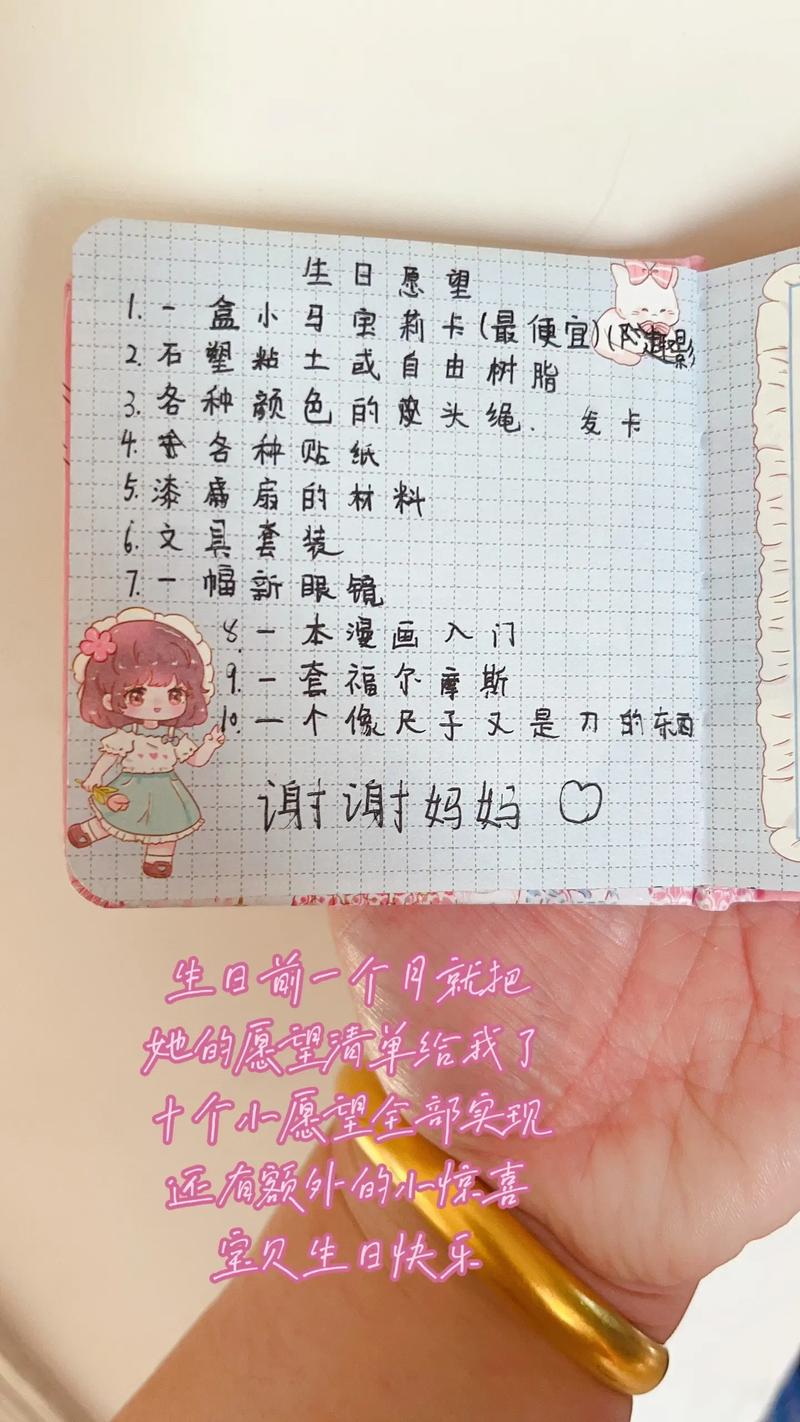 生日愿望
1. 一盒小马宝莉卡(最便宜)(趣影
2. 石塑粘土或自由树脂
3. 各种颜色的皮头绳. 发卡
4. 各种贴纸
5. 漆扇扇的材料
6. 文具套装
7. 一幅新眼镜
8. 一本漫画入门
9. 一套福尔摩斯
10. 一个像尺子又是刀的东西
谢谢妈妈♡
生日前一个月就把
她的愿望清单给我了
十个小愿望全部实现
还有额外的小惊喜
宝贝生日快乐